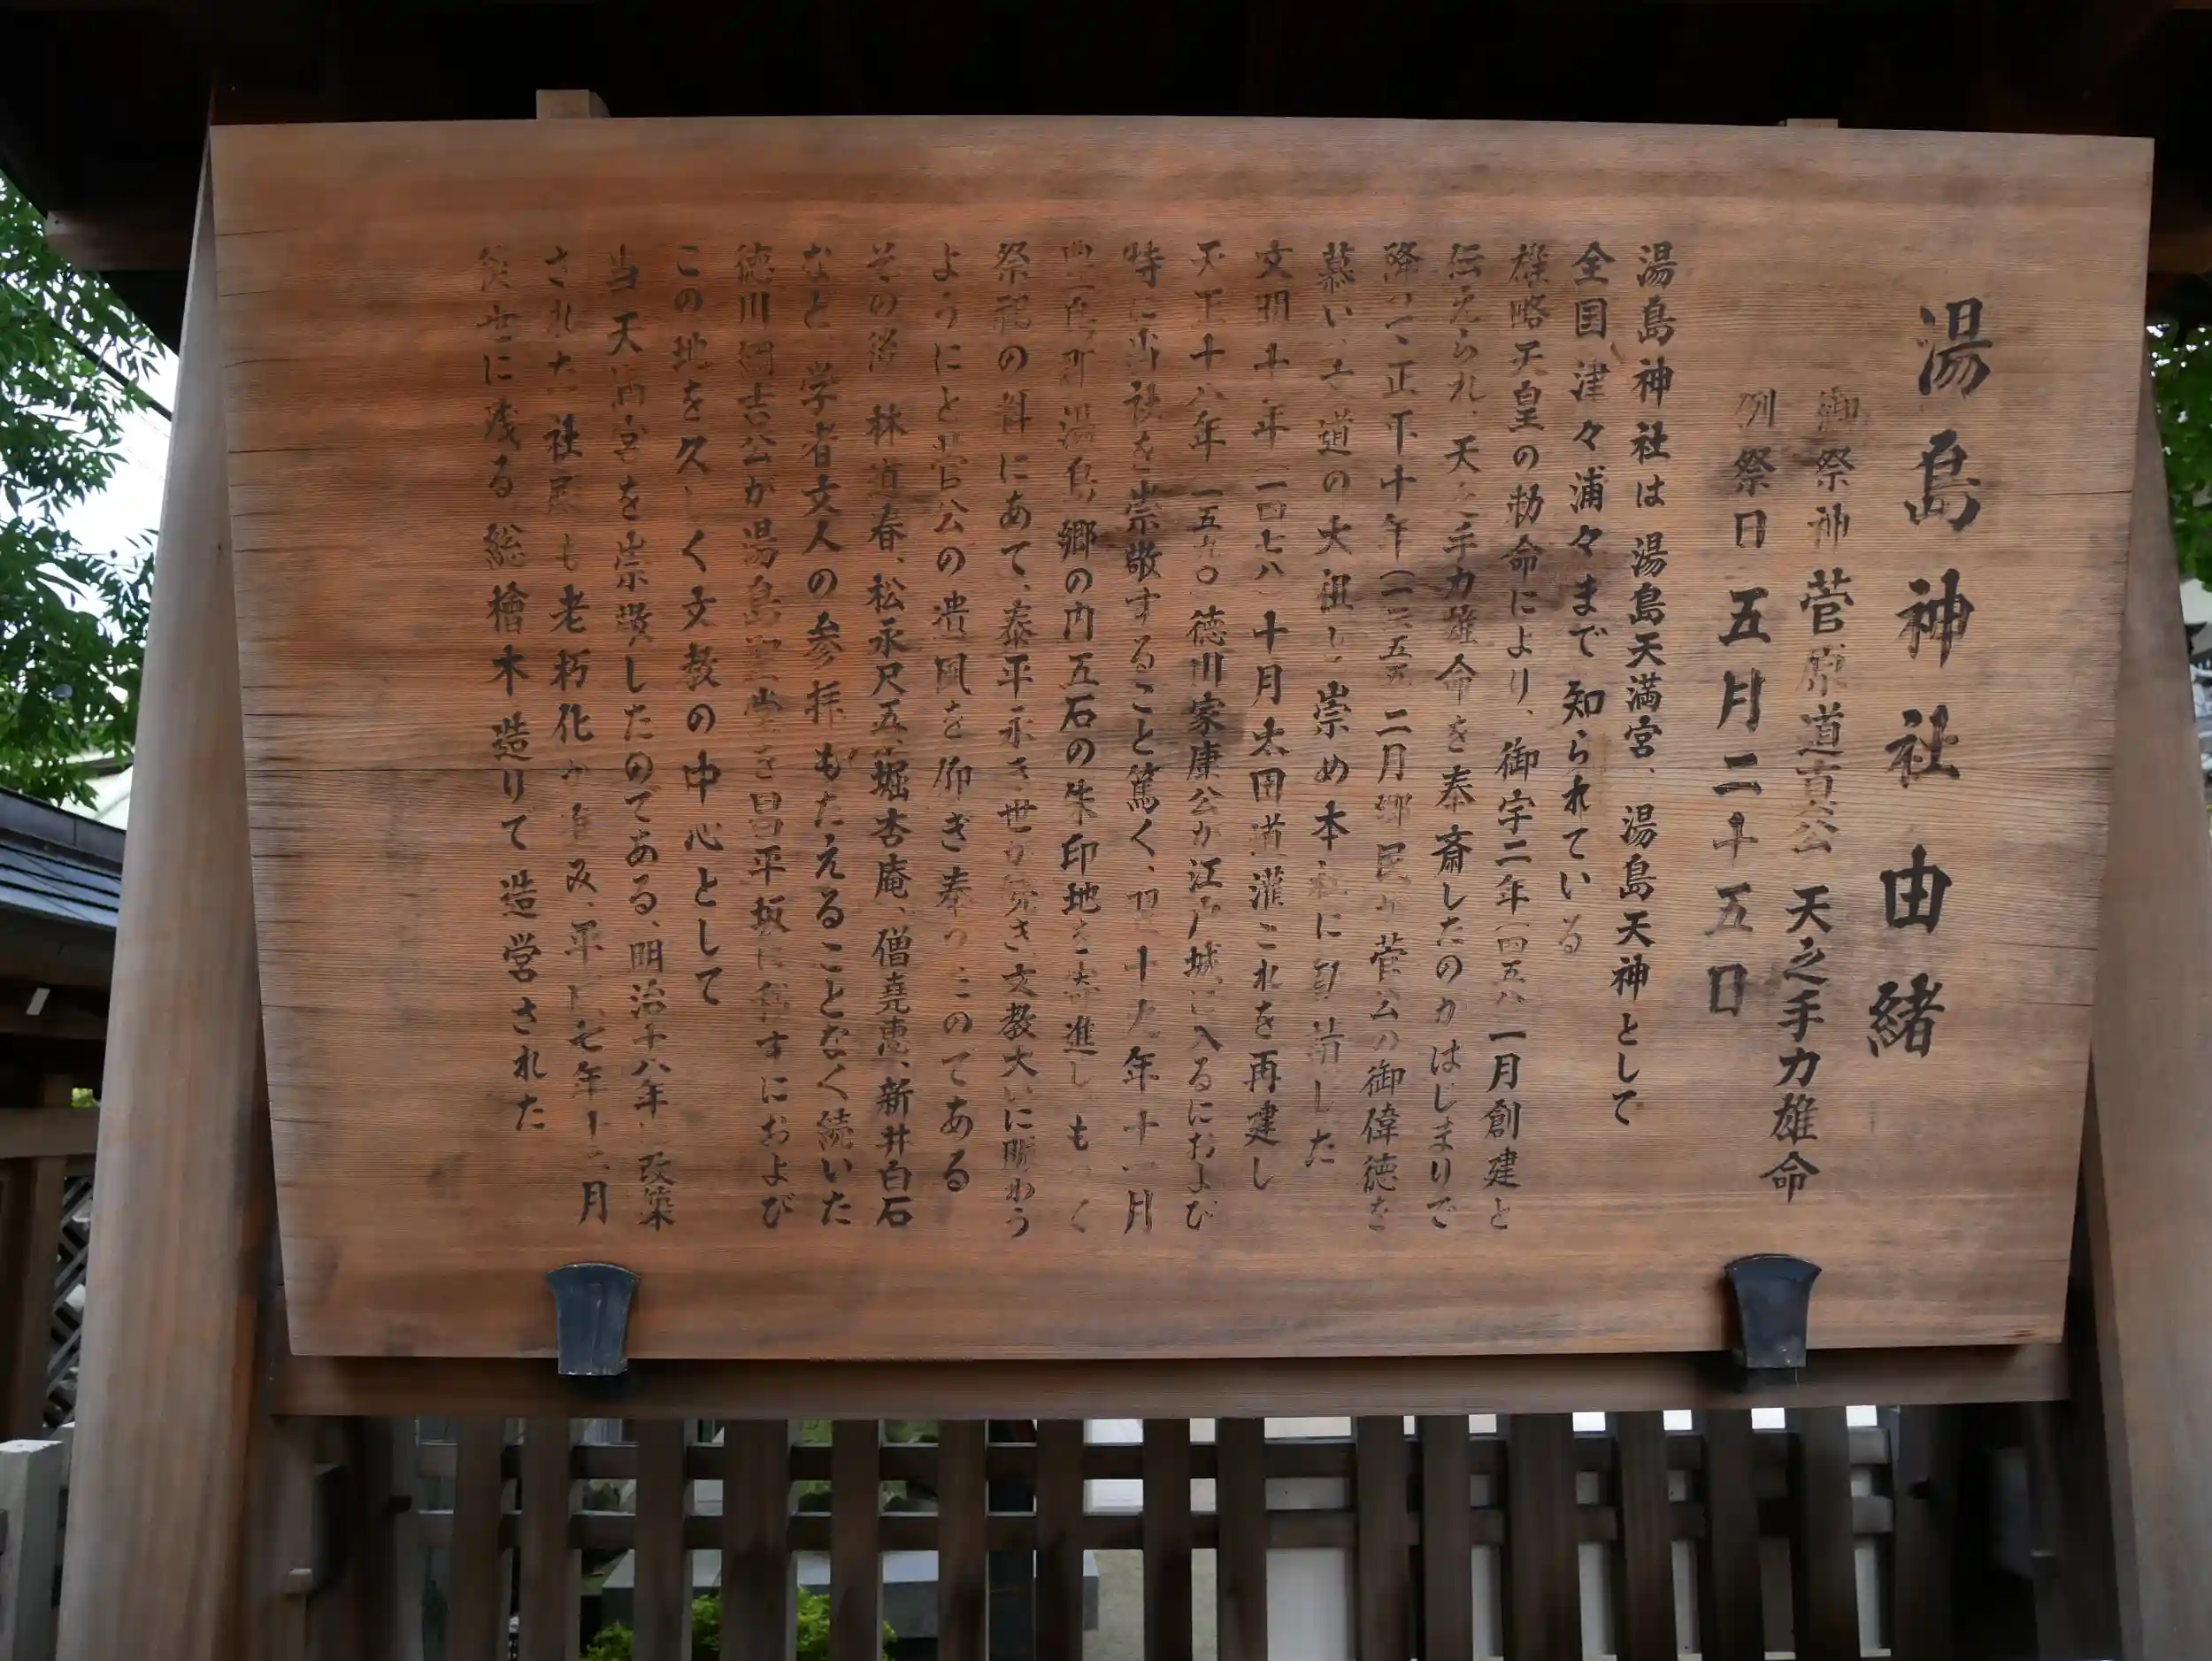 湯島神社由緒
御祭神 菅原道真公 天之手力雄命
例祭日 五月二十五日
湯島神社は湯島天満宮、湯島天神として
全国津々浦々まで知られている
雄略天皇の勅命により、御宇二年(四五八)一月創建と
伝えられ、天之手力雄命を奉斎したのがはじまりで
降って、正平十年(一三五五)二月郷民が菅公の御偉徳を
慕い、文道の大祖と崇め本社に勧請した
文明十年(一四七八)十月太田道灌これを再建し
天正十八年(一五九〇)徳川家康公が江戸城に入るにおよび
特に当社を崇敬すること篤く、翌十九年十一月
豊島郡湯島郷の内五石の朱印地を寄進し、もって
祭祀の料にあて、泰平永き世が続き文教大いに賑わう
ようにと菅公の遺風を仰ぎ奉ったのである
その後、林道春、松永尺五、堀杏庵、僧堯恵、新井白石
など、学者文人の参拝もたえることなく続いた
徳川綱吉公が湯島聖堂を昌平坂に移すにおよび
この地を久しく文教の中心として
当天満宮を崇敬したのである、明治十八年に改築
された社殿も老朽化が進み、平成七年十二月
後世に残る総檜木造りで造営された